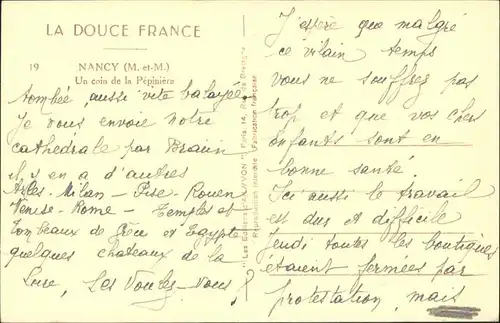 LA DOUCE FRANCE
19 NANCY (M. et-M.)
Un coin de la Pépinière
tombée, aussi vite balayée
Je vous envoie notre
cathédrale par Braun
il y en a d'autres
Arles - Milan - Pise - Rouen
Venise - Rome - Temples et
tombeaux de Grèce et Egypte
quelques chateaux de la
Loire, Les Voulez-Vous?
"Les Editions d'Art YVON" Paris, 14,
Reproduction interdite Fabrication française
J'espère que malgré
ce vilain temps
vous ne souffrez pas
trop et que vos chers
enfants sont en
bonne santé.
Ici aussi le travail
est dur et difficile
Jeudi toutes les boutiques
étaient fermées par
protestation, mais